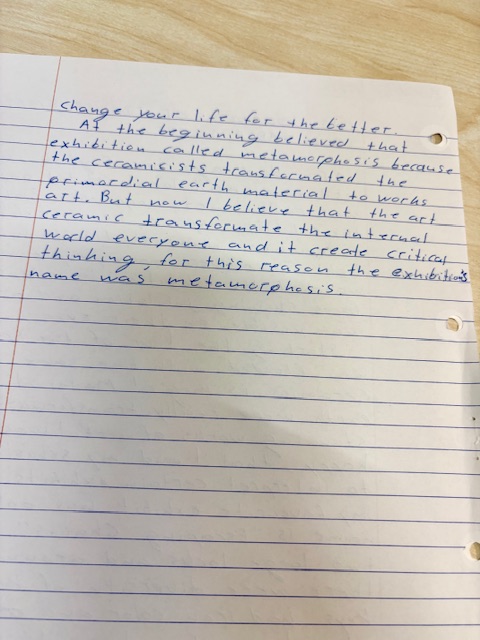 change your life for the better.
At the beginning believed that
exhibition called metamorphosis because
the ceramicists transformated the
primordial earth material to works
art. But now I believe that the art
ceramic transformate the internal
world everyone and it create critical
thinking, for this reason the exhibition's
name was metamorphosis.